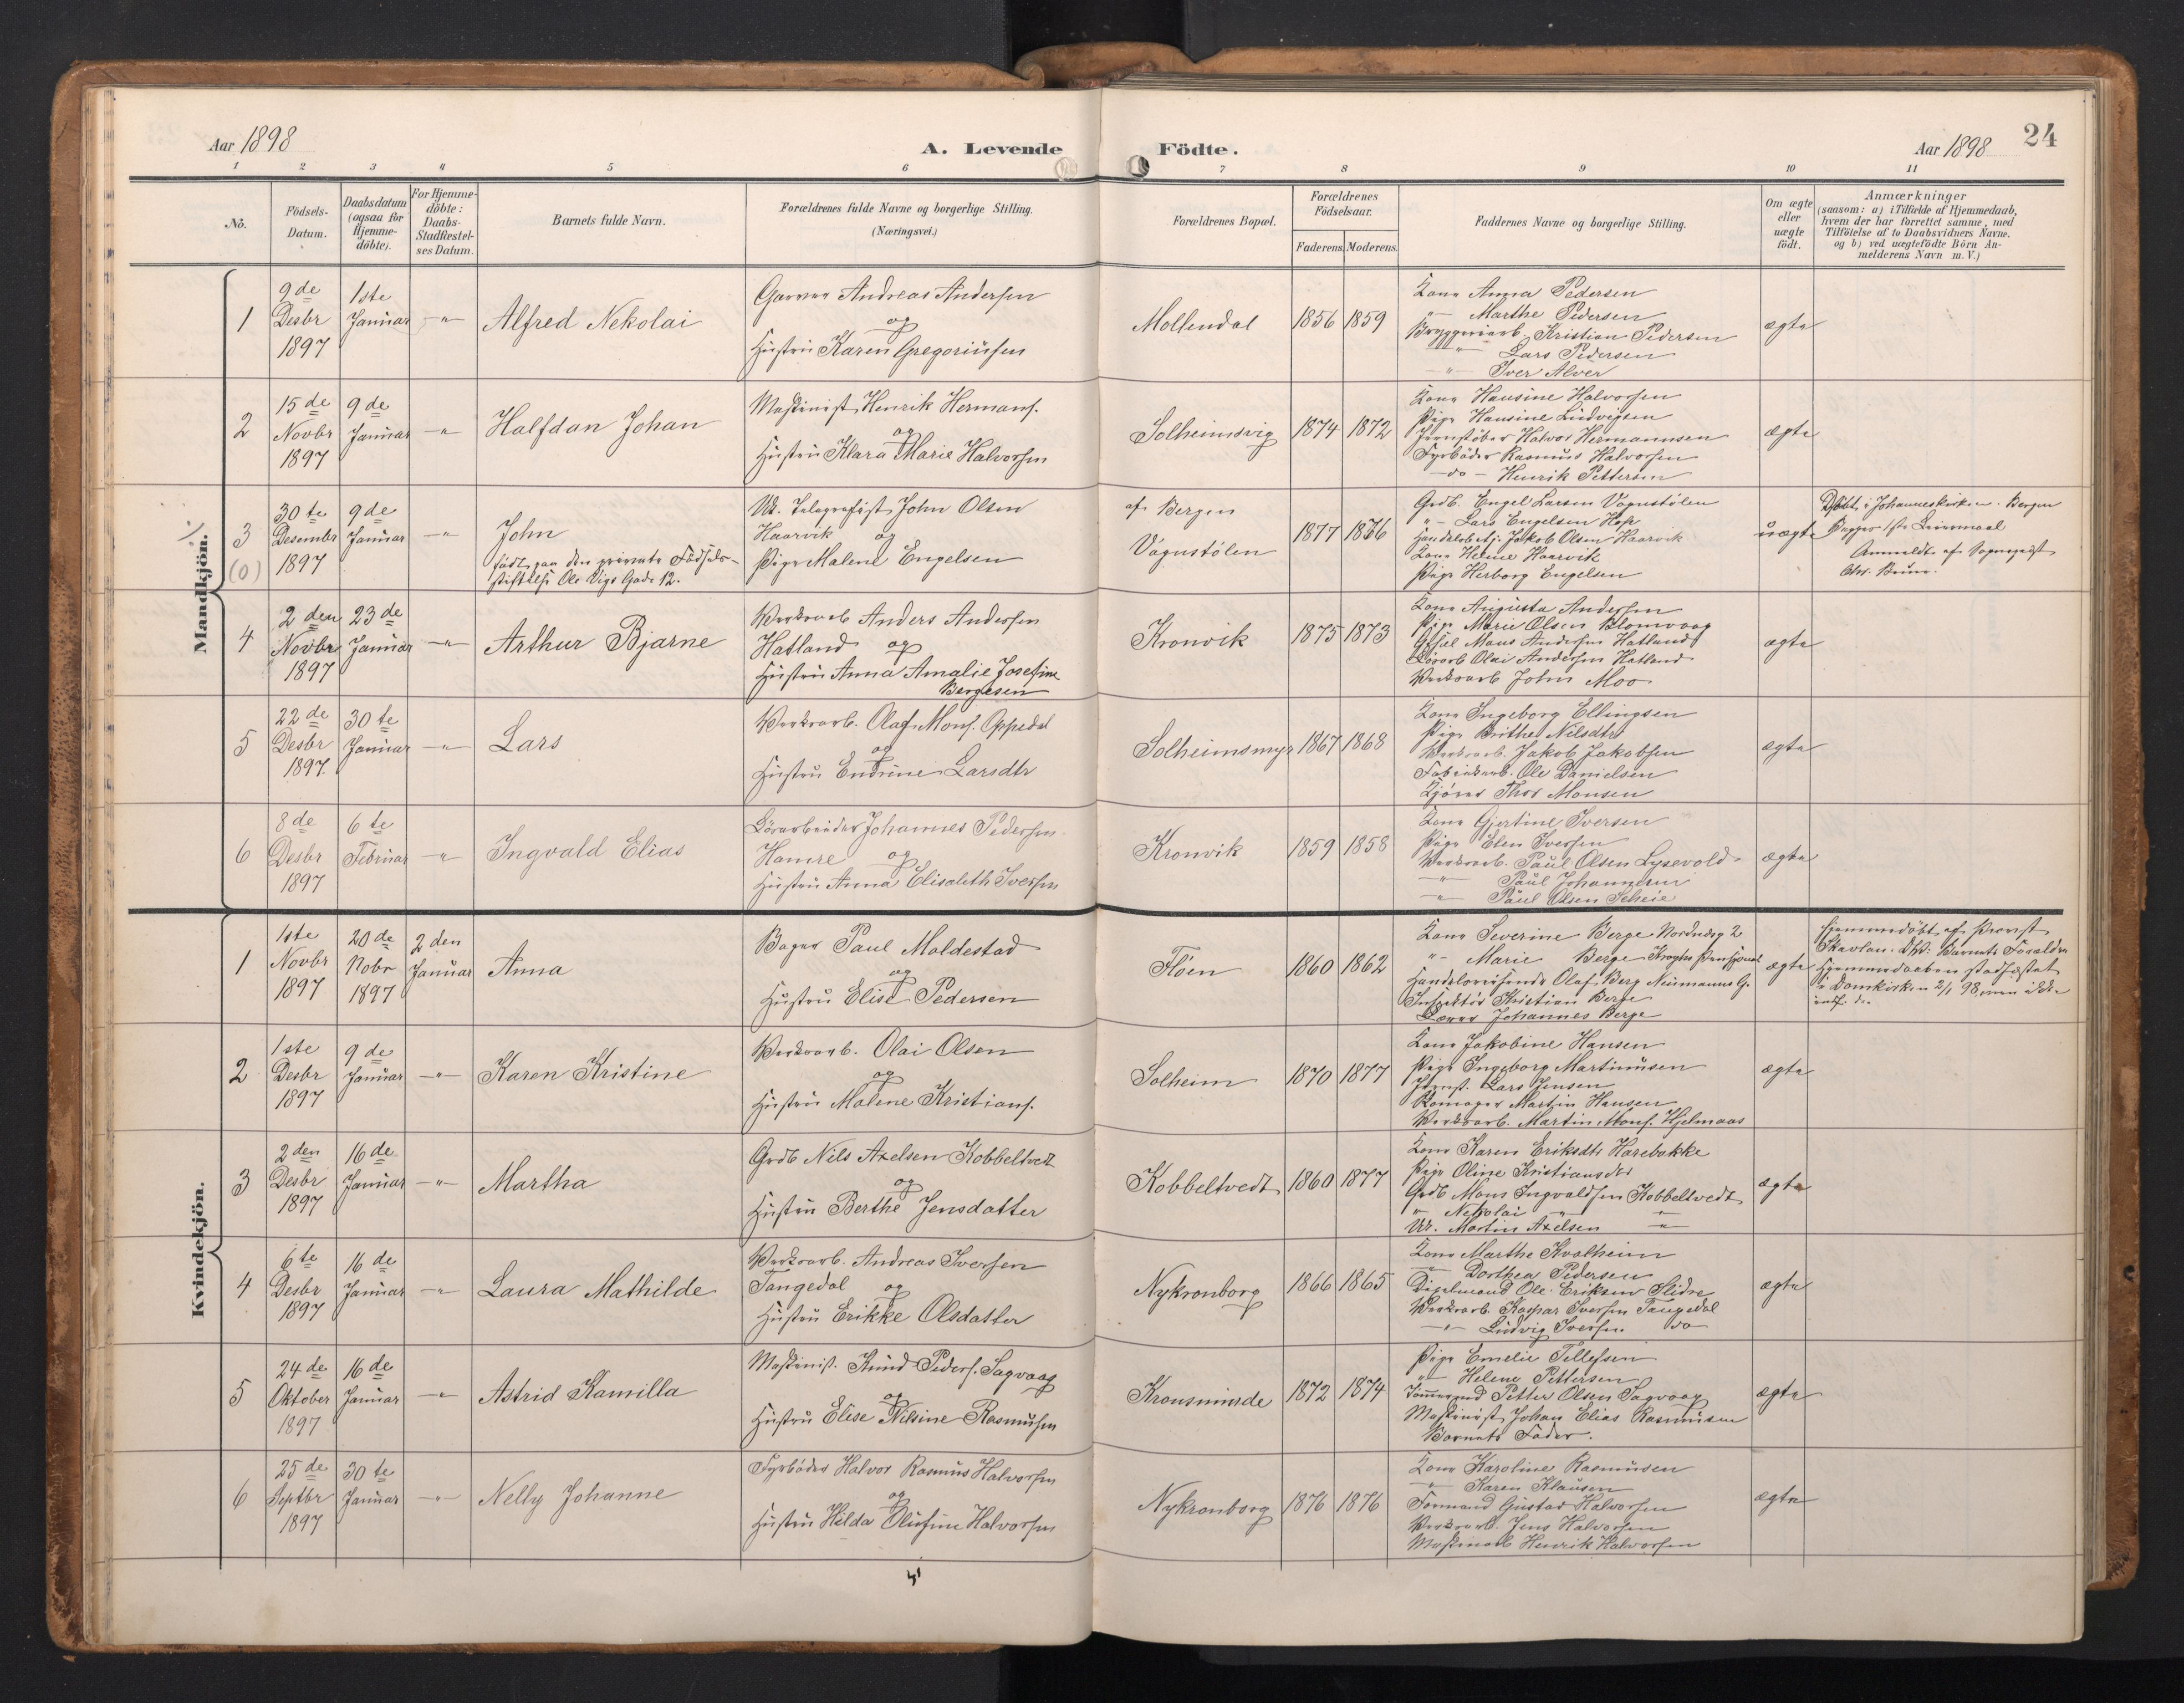 Aar 1898
A. Levende Födte.
Aar 1898
24
1 2 3 4 5 6 7 8 9 10 11
No.
Födsels-Datum.
Daabsdatum (ogsaa for Hjemme-döbte).
For Hjemme-döbte: Daabs-Stadfæstel-ses Datum.
Barnets fulde Navn.
Forældrenes fulde Navne og borgerlige Stilling. (Næringsvei.)
Forældrenes Bopæl.
Forældrenes Födselsaar.
Faderens. Moderens.
Faddernes Navne og borgerlige Stilling.
Om ægte eller uægte födt.
Anmærkninger
(saasom: a) i Tilfælde af Hjemmedaab, hvem der har forrettet samme, med Tilföielse af to Daabsvidners Navne. og b) ved uægtefödte Börn An-melderens Navn m. V.)
Mandkjön.
1
9de Desbr 1897
1ste Januar
-"-
Alfred Nekolai
Garver Andreas Andersen
og
Hustru Karen Gregoriusen
Mollendal
1856 1859
Kone Anna Pedersen
"- Marthe Pedersen
Bryggeriarb. Kristian Pedersen
-"- Lars Pedersen
-"- Iver Alver
ægte
2
15de Novbr 1897
9de Januar
-"-
Halfdan Johan
Maskinist Henrik Hermans.
og
Hustru Klara Marie Halvorsen
Solheimsvig
1874 1872
Kone Hansine Halvorsen
Pige Hansine Ludvigsen
Jernstøber Halvor Hermannsen
Fyrbøder Rasmus Halvorsen
-do- Henrik Pettersen
ægte
3
(0)
30te Desember 1897
9de Januar
-"-
John
født paa den private Fødsels-
stiftelse Ole Vigs Gade 12.
Uk. Telegrafist John Olsen
Haarvik og
Pige Malene Engelsen
af Bergen
Vågustölen
1877 1876
Grdb. Engel Larsen Vågustölen
"- Lars Engelsen Hope
Handelsbetj. Jakob Olsen Haarvik
Kone Helene Haarvik
Pige Herborg Engelsen
uægte
Döbt i Johanneskirken. Bergen
Begges 1ste Leiermaal
Anmeldt af Sogneprest
Chr. Bruun.
4
2den Novbr 1897
23de Januar
-"-
Arthur Bjarne
Verksarb Anders Andersen
Hatland og
Hustru Anna Amalie Josefine
Bergesen
Kronvik
1875 1873
Kone Augusta Andersen
Pige Marie Olsen Blomvaag
Gesæl Mons Andersen Hatland
Løsarb Olai Andersen Hatland
Verksarb John Moo
ægte
5
22de Desbr 1897.
30te Januar
-"-
Lars
Verksarb. Olaf Mons. Oppedal
og
Hustru Endrine Larsdtr
Solheimsmyr
1867 1868
Kone Ingeborg Ellingsen
Pige Brithe Nilsdtr
Verksarb. Jakob Jakobsen
Fabrikarb. Ole Danielsen
Kjører Thor Monsen
ægte
6
8de Desbr 1897
6te Februar
-"-
Ingvald Elias
Løsarbeider Johannes Pedersen
Hamre og
Hustru Anna Elisabeth Iversen
Kronvik
1859 1858
Kone Gjertine Iversen
Pige Elen Iversen
Verksarb. Paul Olsen Lysevold
-"- Paul Johannesen
-"- Paul Olsen Scheie
ægte
Kvindekjön.
1
1ste Novbr 1897
20de Nobr 1897
2den Januar
Anna
Bager Paul Moldestad
og
Hustru Elise Pedersen
Flöen
1860 1862
Kone Severine Berge Nordnæsg 2
"- Marie Berge Kroghs Pensjonat
Handelsreisende Olaf Berg Neumanns G.
Inspektør Kristian Berge
Lærer Johannes Berge
ægte
Hjemmedöbt af Provst
Skavlan. Dv: Barnets Forældre
Hjemmedaaben stadfæstet
i Domkirken 2/1 98, men ikke
indf. der
2
1ste Desbr 1897
9de Januar
-"-
Karen Kristine
Verksarb. Olai Olsen
og
Hustru Malene Kristians.
Solheim
1870 1877
Kone Jakobine Hansen
Pige Ingeborg Martinusen
Jernst. Lars Jensen
Skomager Martin Hansen
Verksarb. Martin Mons. Hjelmaas
ægte
3
2den Desbr 1897
16de Januar
-"-
Martha
Grdb Nils Axelsen Kobbeltvedt
og
Hustru Berthe Jensdatter
Kobbeltvedt
1860 1877
Kone Karen Eriksdtr Harebakke
Pige Oline Kristiansdtr
Grdb Mons Ingvaldsen Kobbeltvedt
" Nekolai " "
Uk. Martin Axelsen -"-
ægte
4
6te Desbr 1897
16de Januar
-"-
Laura Mathilde
Verksarb. Andreas Iversen
Tangedal og
Hustru Erikke Olsdatter
Nykronborg
1866 1865
Kone Marthe Kvalheim
-"- Dorthea Pedersen
Digelmand Ole Eriksen Slidre
Verksarb. Kaspar Iversen Tangedal
-"- Ludvig Iversen do
ægte
5
24de Oktober 1897
16de Januar
-"-
Astrid Kamilla
Maskinist. Knud Peders. Sagvaag
og
Hustru Elise Nilsine Rasmusen
Kronsminde
1872 1874
Pige Emelie Tellefsen
"- Helene Pettersen
Tømmermd Petter Olsen Sagvaag
Maskinist Johan Elias Rasmusen
Barnets Fader.
ægte
6
25de Septbr 1897
30te Januar
-"-
Nelly Johanne
Fyrbøder Halvor Rasmus Halvorsen
og
Hustru Hilda Olufine Halvorsen
Nykronborg
1876 1876
Kone Karoline Rasmusen
-"- Karen Klausen
Formand Gustav Halvorsen
Verksarb. Jens Halvorsen
Maskinarb Henrik Halvorsen
ægte